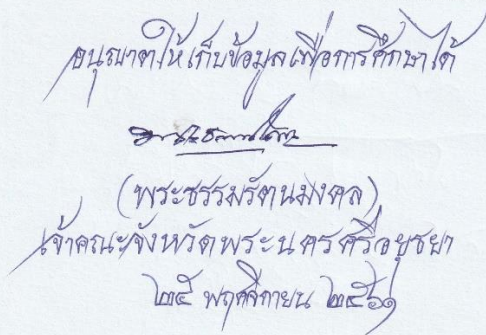 อนุญาตให้เก็บข้อมูลเพื่อการศึกษาได้
(พระธรรมรัตนมงคล)
เจ้าคณะจังหวัดพระนครศรีอยุธยา
๒๕ พฤศจิกายน ๒๕๖๑